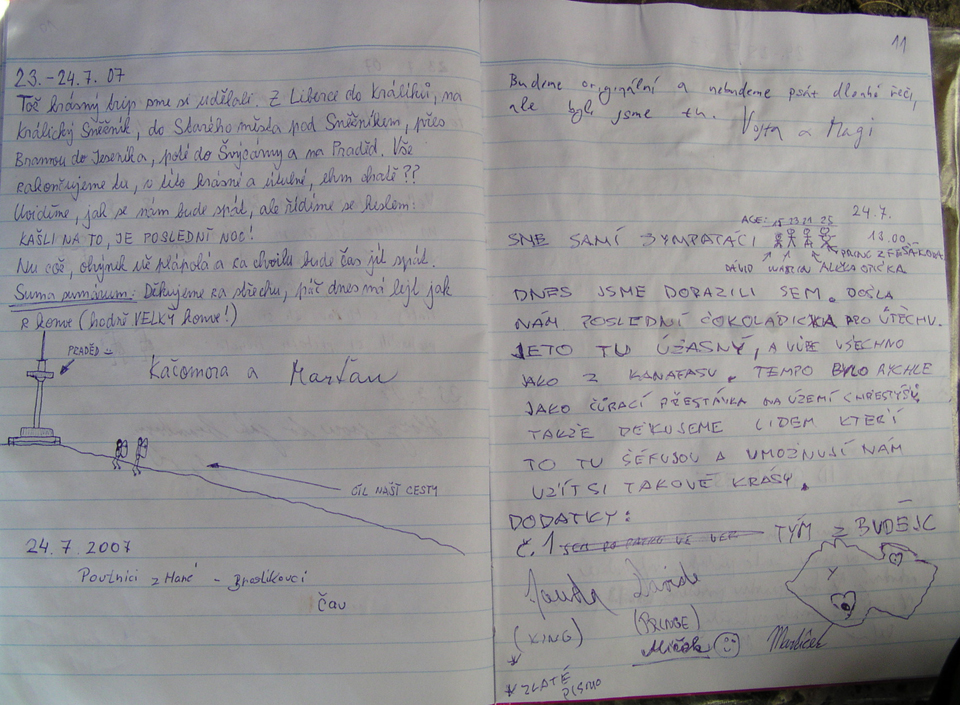 23.-24.7.07
Tož krásný trip sme si udělali. Z Liberce do Králíků, na
Králický Sněžník, do Starého města pod Sněžníkem, přes
Brannou do Jeseníka, poté do Švýcárny a na Praděd. Vše
zakončujeme tu, v této krásné a útulné, ehm chatě??
Uvidíme, jak se nám bude spát, ale řídíme se heslem:
KAŠLI NA TO, JE POSLEDNÍ NOC!
Nu což, ohýnek už plápolá a za chvilu bude čas jít spát.
Suma sumárum: Děkujeme za střechu, páč dnes má lejt jak
z konve (hodně VELKÝ konve!)
PRADĚD
Kačomora a Marťan
CÍL NAŠÍ CESTY
24.7.2007
Poutníci z Hané -
Čau
11
Budeme originální a nebudeme psát dlouhé řeči,
ale byli jsme tu. Vojta a Magi
24.7.
AGE: 15 23 21 25
SME SAMÍ SYMPATÁCI 18.00
PRINC Z
DÁVID
DNES JSME DORAZILI SEM. DOŠLA
NÁM POSLEDNÍ ČOKOLÁDIČKA PRO ÚTĚCHU.
JETO TU ÚŽASNÝ, A VŮBE VŠECHNO
JAKO Z KANAFASU. TEMPO BYLO RYCHLE
JAKO ČŮRACÍ PŘESTÁVKA NA ÚZEMÍ CHŘESTÝŠŮ
TAKŽE DĚKUJEME LIDEM KTEŘÍ
TO TU ŠÉFUJOU A UMOŽNUJÍ NÁM
UŽÍT SI TAKOVÉ KRÁSY.
DODATKY:
Č.1 TÝM Z BUDĚJC
Davide
(KING) (PRINGE)
ZLATÉ
PÍSMO